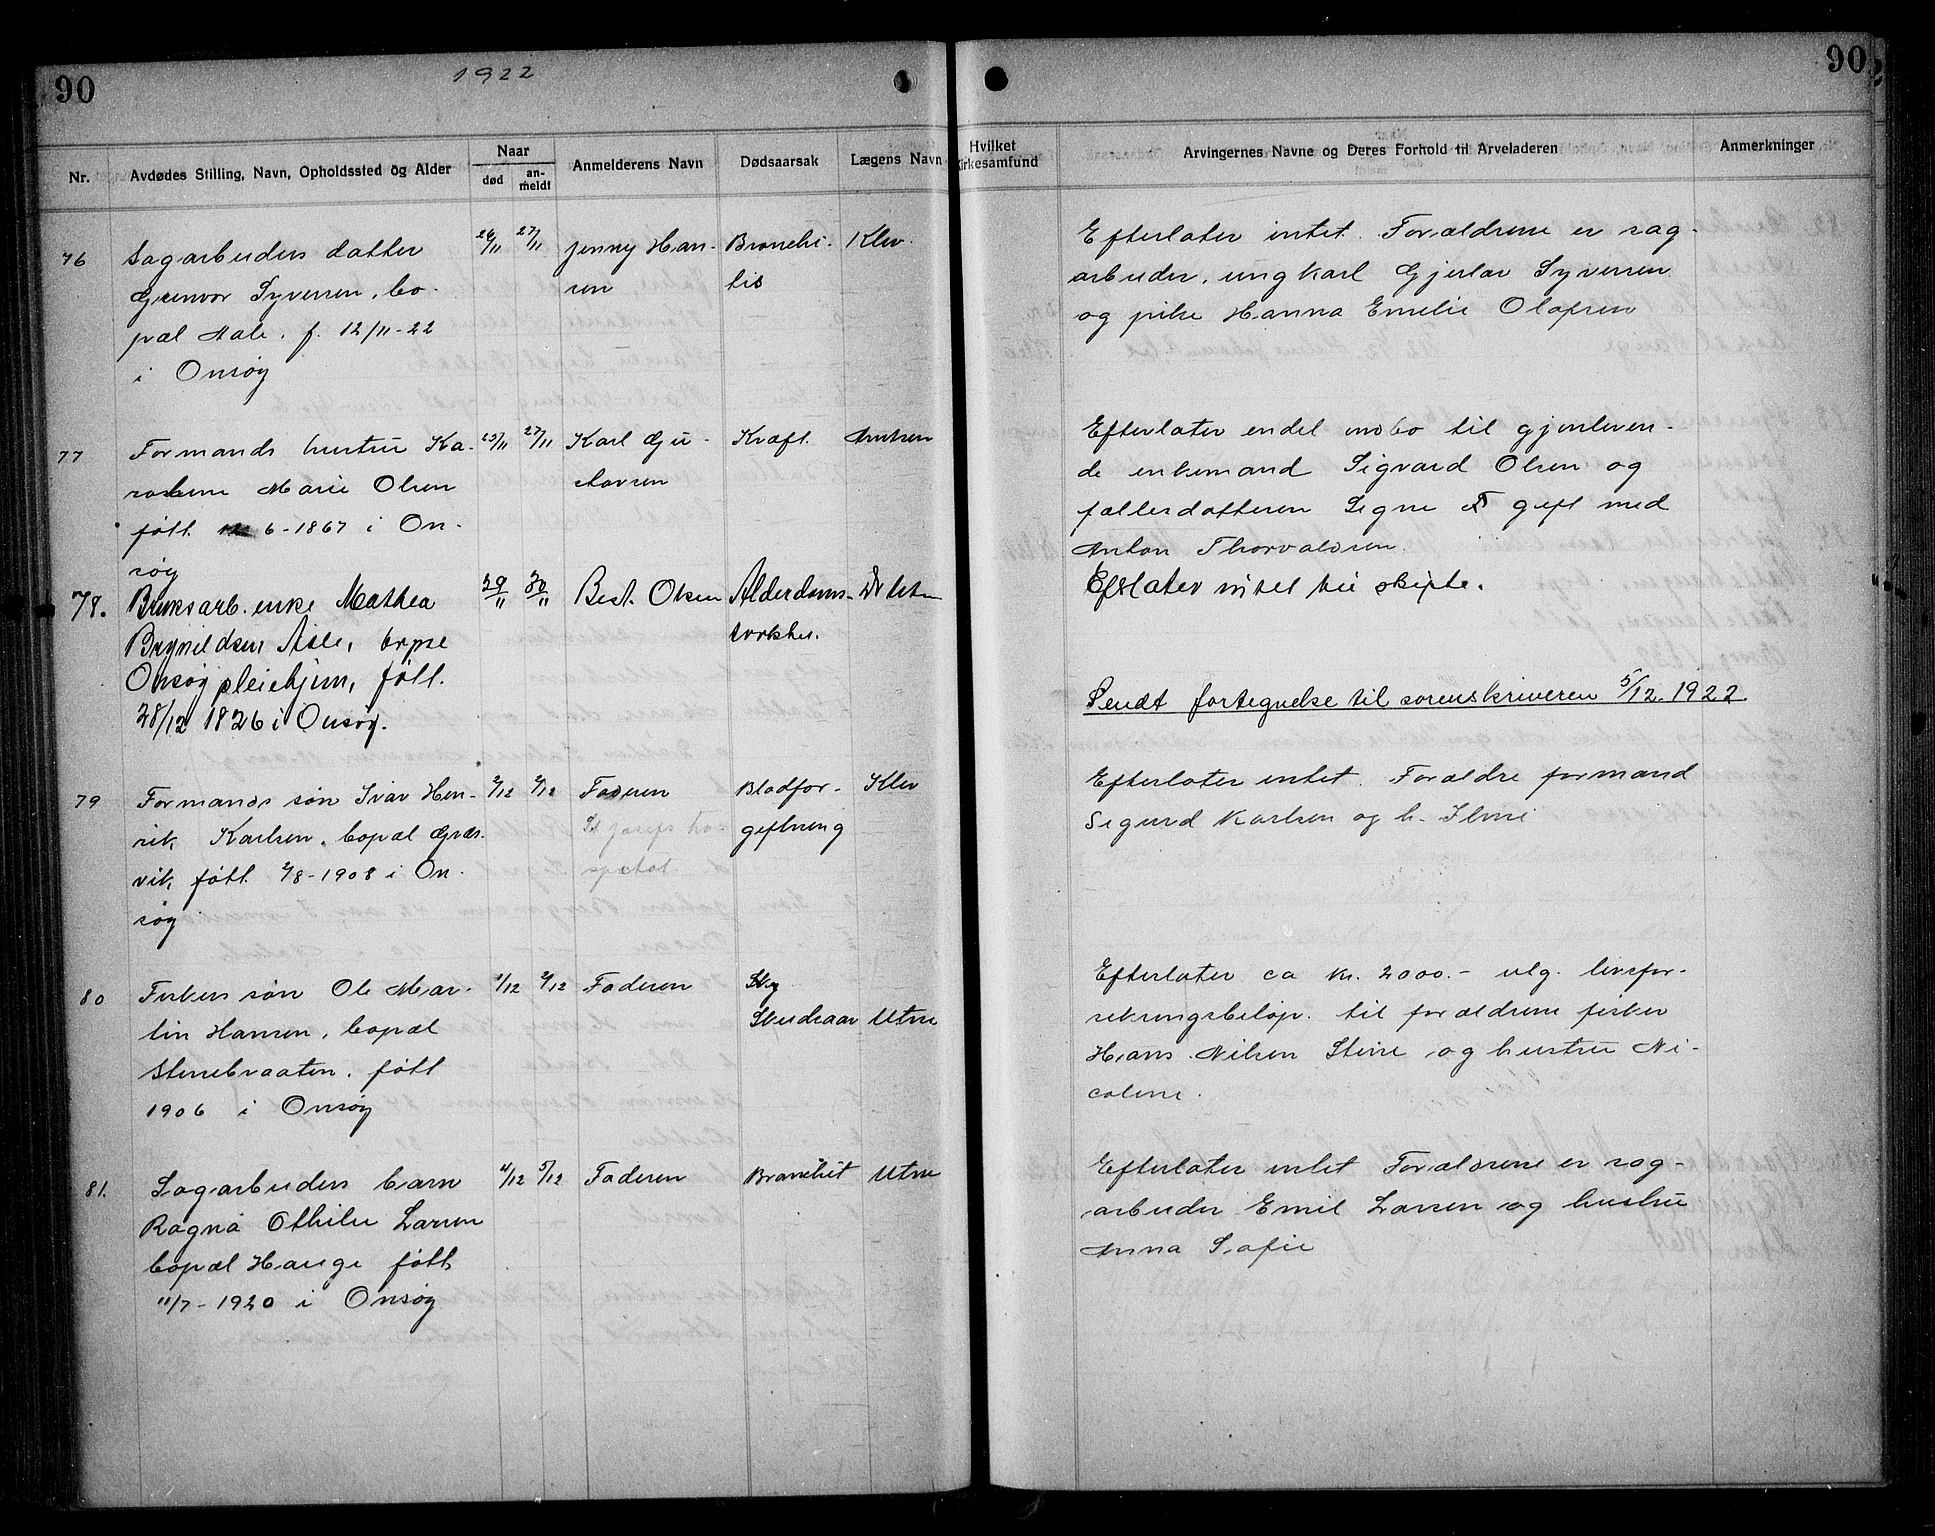 90
1922
90
Nr.
Avdødes Stilling, Navn, Opholdssted og Alder
Naar
død
an-
meldt
Anmelderens Navn
Dødsaarsak
Lægens Navn
Hvilket
Kirkesamfund
Arvingernes Navne og Deres Forhold til Arveladeren
Anmerkninger
76
Sagarbeiders datter
Gunvor Syversen, bo-
pæl Aale. f. 12/11-22
i Onsøy
26/11 27/11
Jenny Han-
sen
Bronchi-
tis
Klev
Efterlater intet. Forældrene er sag-
arbeider, ungkarl Gjerlav Syversen
og pike Hanna Emelie Olafsen
77
Formands hustru Ka-
Marie Olsen
født 6-1867 i On-
søy
25/11 27/11
Karl Gu-
stavsen
Kræft.
Arntzen
Efterlater endel indbo til gjenleven-
de enkemand Sigvard Olsen og
fællesdatteren Signe gift med
Anton Thorvaldsen.
78.
Bruksarb. enke Mathea
Brynildsen Aale, bopæl
Onsøy pleiehjem, født.
28/12 1826 i Onsøy.
29/11 30/11
Best. Olsen
Alderdoms-
svakhet.
Efterlater intet til skifte.
Sendt fortegnelse til sorenskriveren 5/12. 1922.
79
Formands søn Ivar Hen-
rik Karlsen, bopæl Græs-
vik, født 2/8-1908 i On-
søy
2/12 2/12
Faderen
St Josefs ho-
spital
Blodfor-
giftning
Klev
Efterlater intet. Forældre formand
Sigurd Karlsen og h.
80
Fiskers søn Ole Mar-
tin Hansen, bopæl
Stenebraaten, født
1906 i Onsøy
1/12 2/12
Faderen
Skudsaar
Utne
Efterlater ca kr. 2000.- utg. livsfor-
sikringsbeløp. til forældrene fisker
Hans Nilsen Stene og hustru Ni-
coline.
81.
Sagarbeiders barn
Ragna Othilie Larsen
bopæl Hauge født
11/7-1920 i Onsøy
4/12 5/12
Faderen
Bronchit
Utne
Efterlater intet Forældrene er sag-
arbeider Emil Larsen og hustru
Anna Sofie